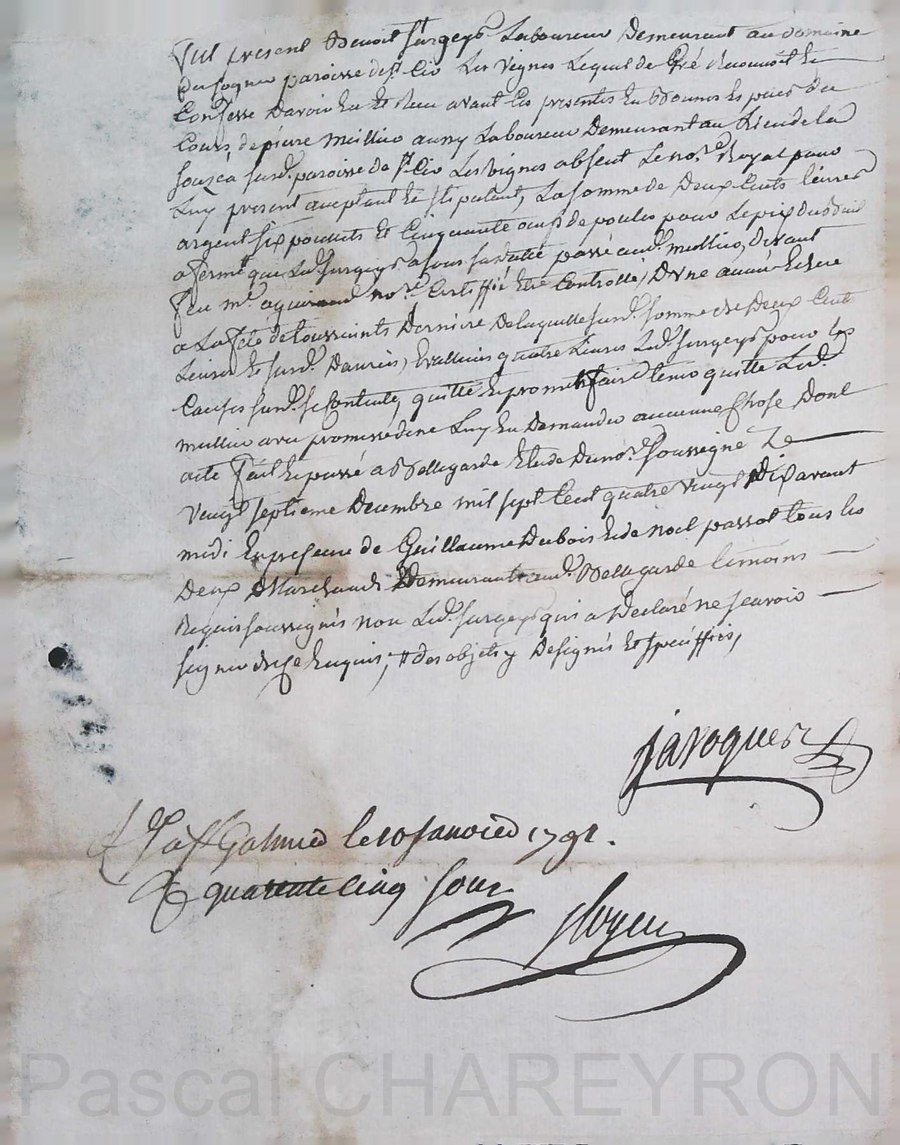 fut present Benoit Surgeys Laboureur Demeurant au domaine
du paroisse de st Cir Les Vignes Lequel de Gré Reconnoit Et
Confesse Davoir Eu Et Recu avant Ces presentes En Bonnes Especes du
Cours de pierre mollien Laboureur Demeurant au Lieu de la
susd. paroisse de st Cir Les Vignes absent Le nore. Royal pour
Luy present acceptant Et stipulant, La somme de Deux Cents Livres
argent six poulets Et Cinquante oeufs de poules pour Le prix du Bail
a ferme que Led. Surgeys a sous passé aud. mollien, Devant
feu me. nore. Certiffié Etre Controllé, D'une année Echue
a La fete de toussaints Derniere De laquelle susd. somme de Deux Cents
Livres Et susd. quatre Livres Led. Surgeys pour les
Causes susd. se Contente, quitte Et promet faire tenir quitte Led.
mollien avec promesse de ne Luy En Demander aucune Chose Dont
acte fait Et passé a Bellegarde Etude du nore. Soussigné Le
Vingt septieme Decembre mil sept Cent quatre vingt Dix avant
midi En presence de Guillaume Dubois Et de Noel passot tous les
Deux Marchands Demeurants aud. Bellegarde temoins
Requis soussignés non Led. Surgeys qui a Declaré ne Scavoir
signer de ce Enquis, # des objets y Designés Et speciffiés,
Javogues
Galmier le 10 janvier 1791.
quarente cinq sous
ployeu
Pascal CHAREYRON